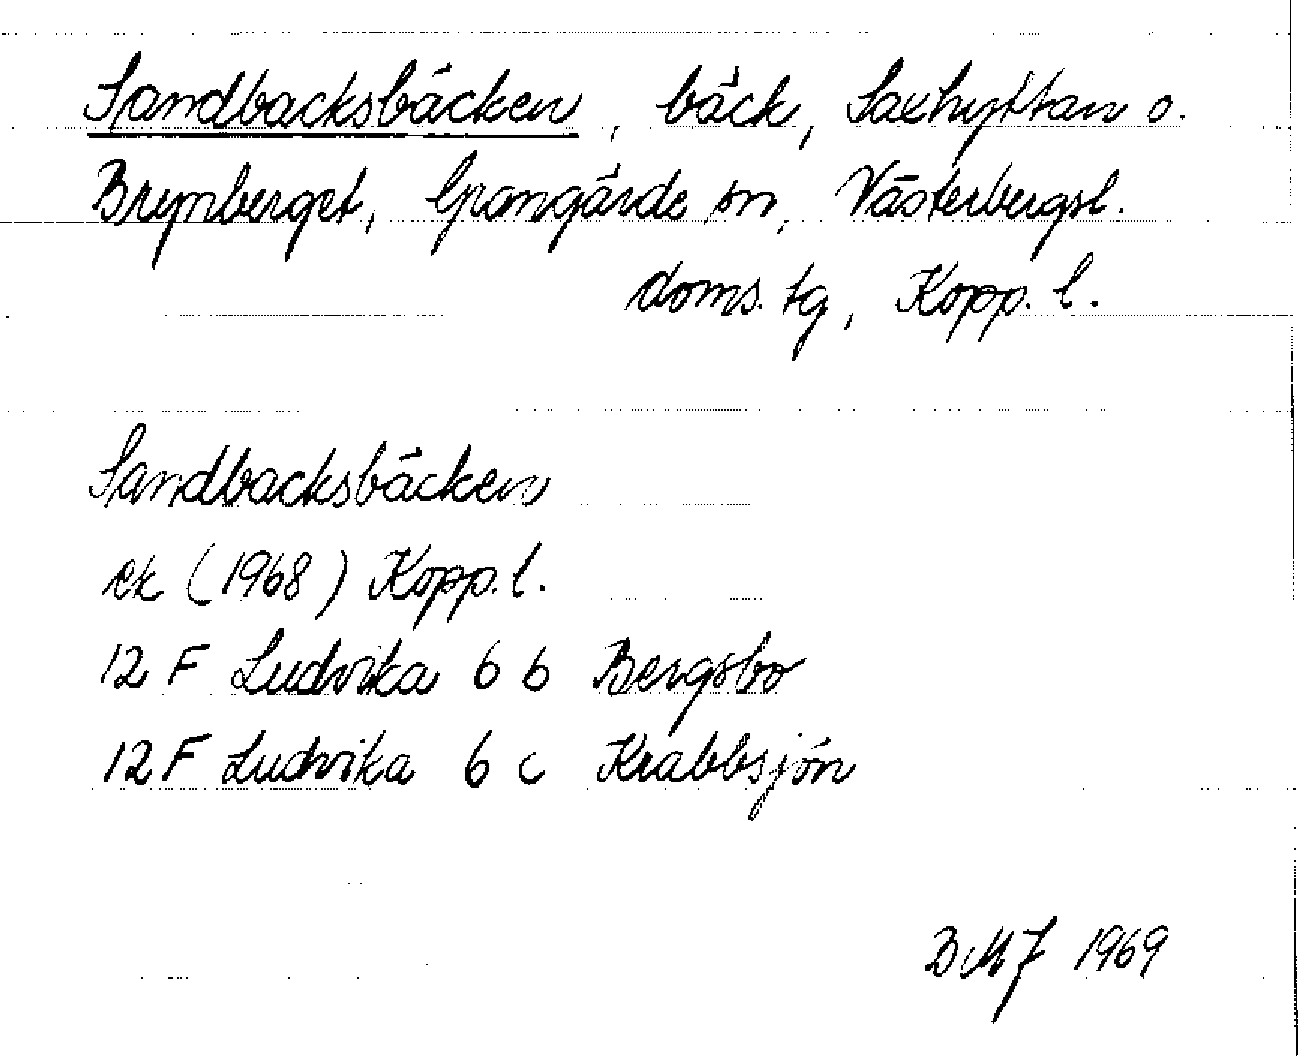 Sandbacksbäcken, bäck, Saxhyttan o.
Brynberget, Grangärde sn, Västerbergsl.
doms. tg, Kopp. l.
Sandbacksbäcken
ek (1968) Kopp. l.
12 F Ludvika 6 b Bergsbo
12 F Ludvika 6 c Krabbsjön
BMJ 1969